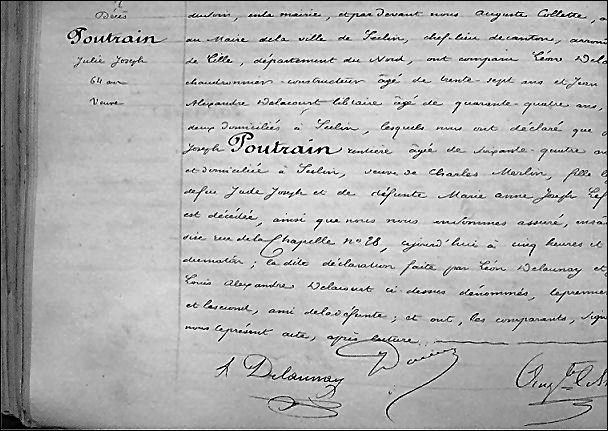 Décès
Poutrain
Julie Joseph
64 ans
Veuve
du Nord, en la mairie, et par devant nous Auguste Collette, a
au Maire de la ville de Seclin, chef-lieu de canton, arron
de Lille, département du Nord, ont comparu Léon Dela
chaudronnier-constructeur âgé de trente-sept ans et Jean
Alexandre Delacourt, libraire âgé de quarante-quatre ans,
deux domiciliés à Seclin, lesquels nous ont déclaré que
Joseph Poutrain rentière âgée de soixante-quatre an
et domiciliée à Seclin, veuve de Charles Marlin, fille l
défeu Jude Joseph et de défunte Marie anne Joseph Lef
est décédée, ainsi que nous nous en sommes assuré, en sa
sise rue de la Chapelle n° 28, aujourd'hui à cinq heures et
du matin ; la dite déclaration faite par Léon Delaunay et
Louis Alexandre Delacourt ci-dessus dénommés, le premier
et le second, ami de la défunte ; et ont, les comparants, sign
nous le présent acte, après lecture.
Delaunay